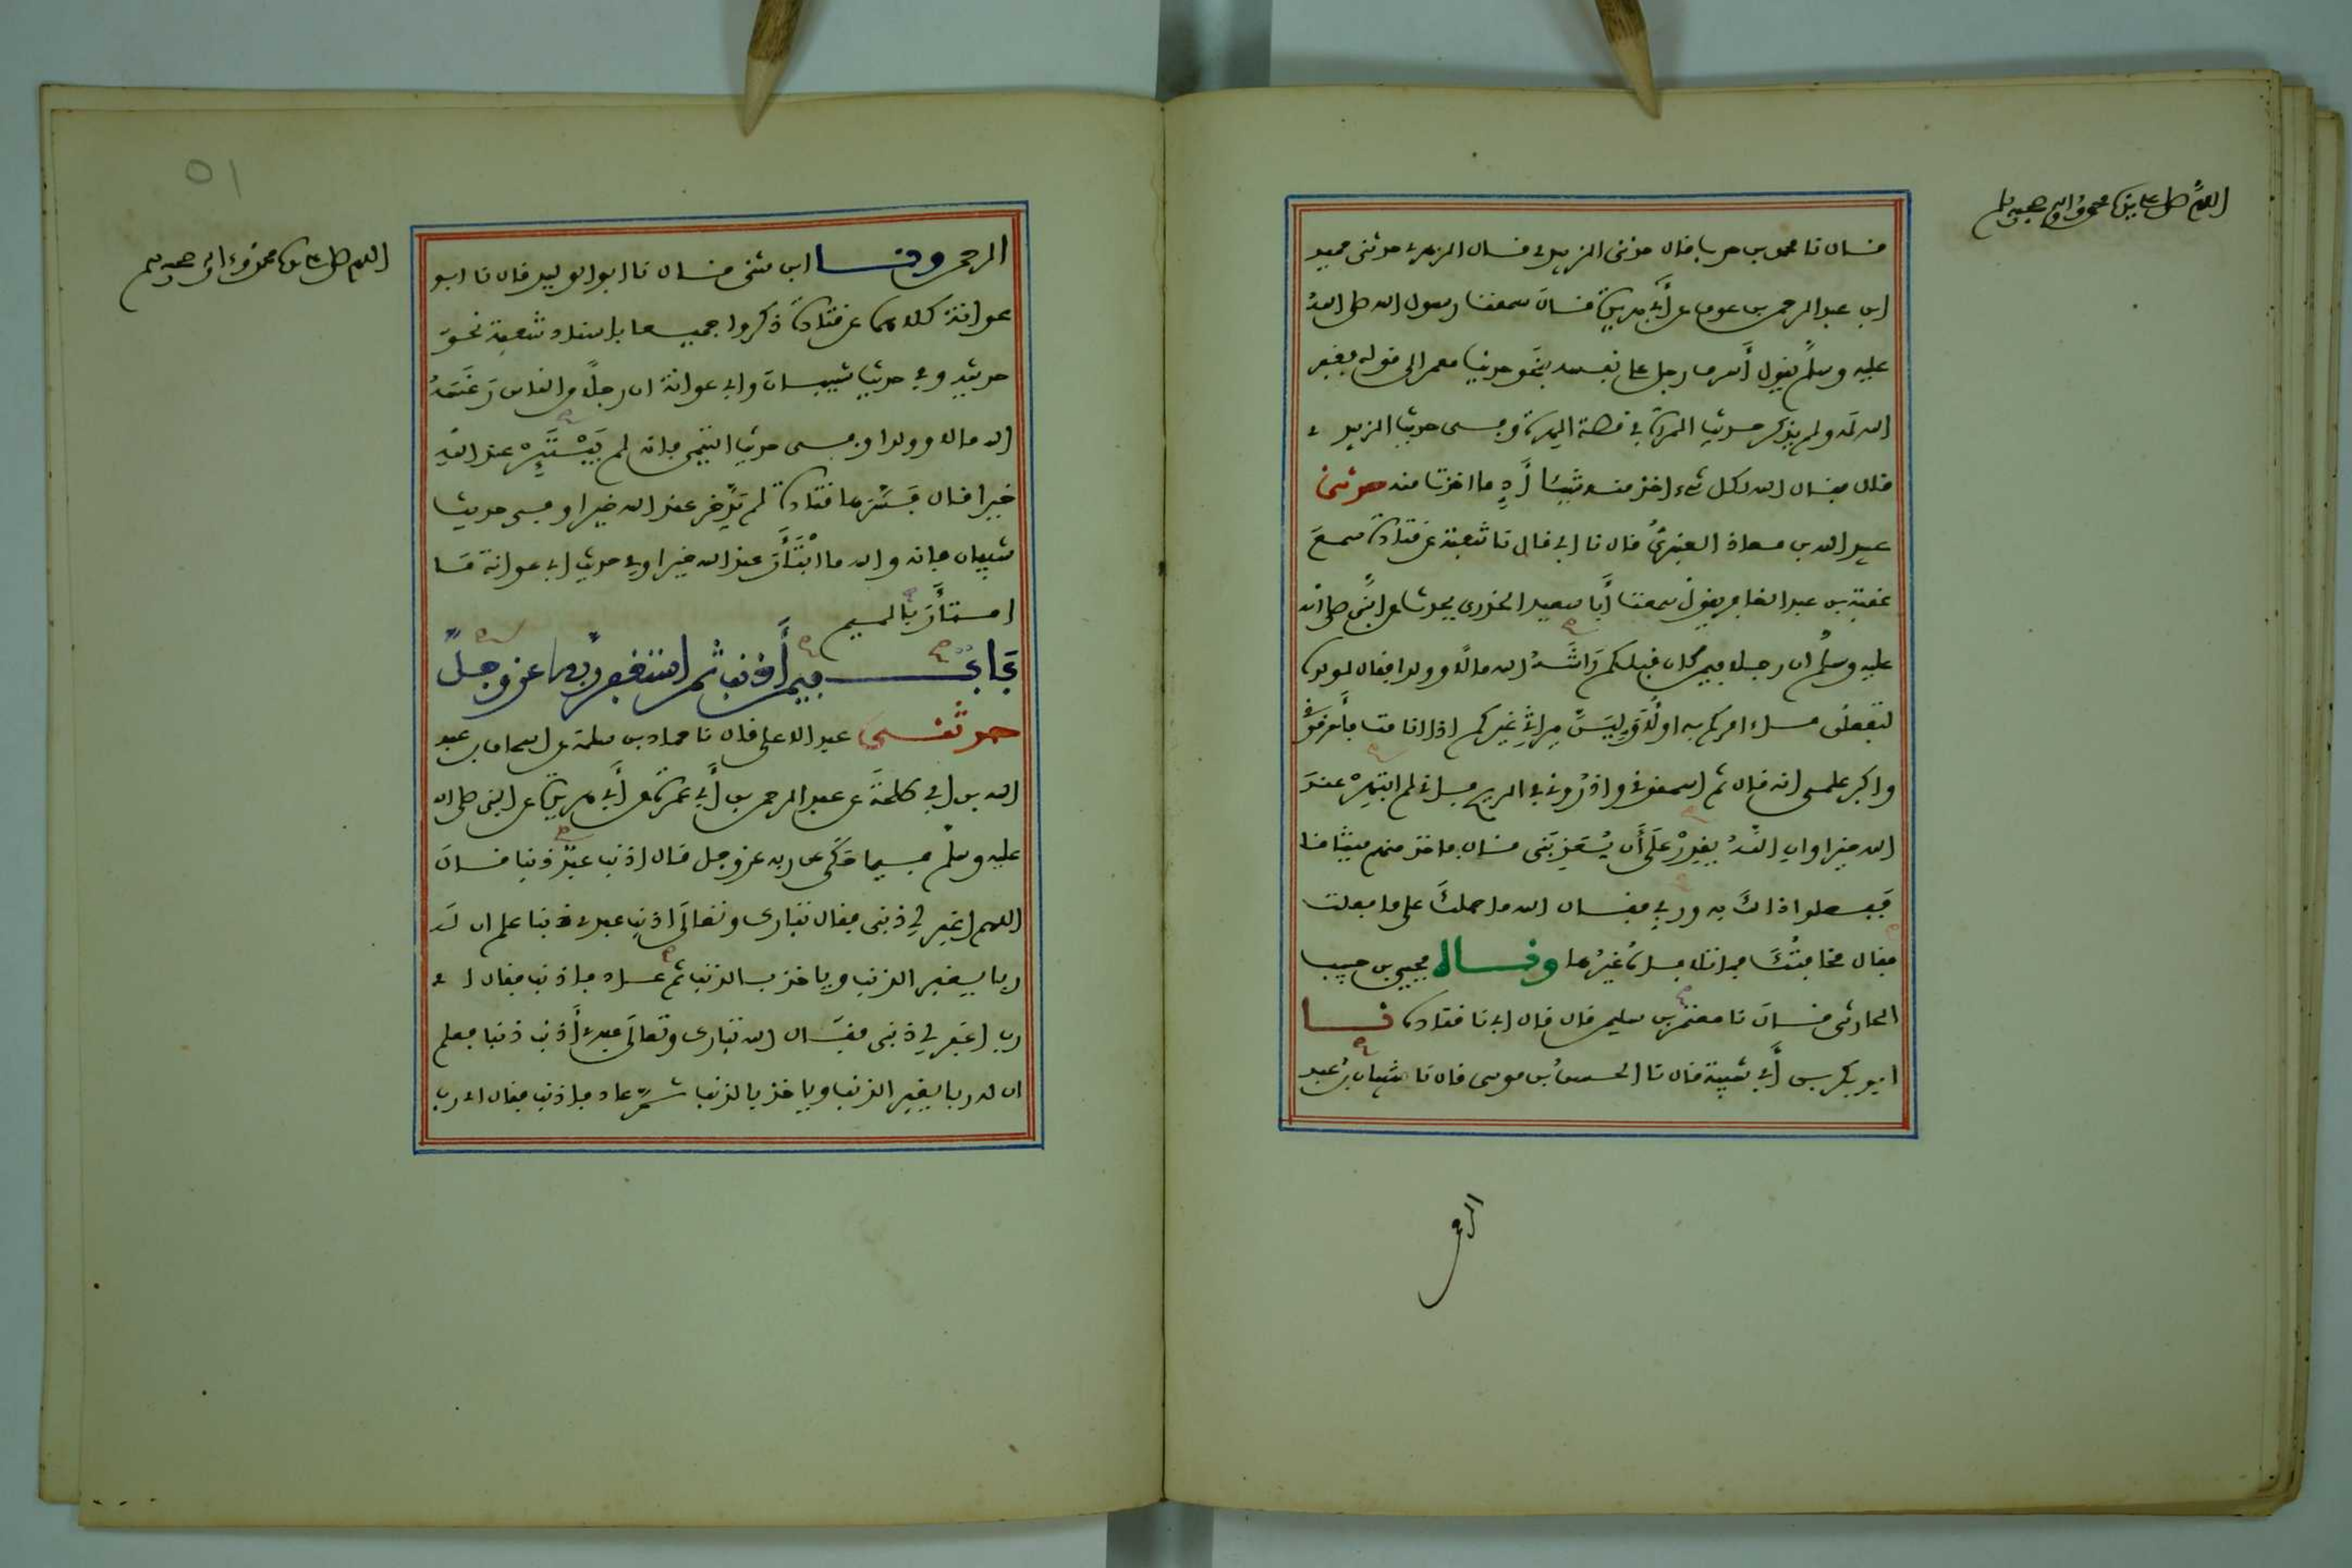 اللهم صل على سيدنا محمد وآله وصحبه وسلم
قال نا محمد بن حرب قال حدثني الزبيدي قال الزهري حدثني حميد
ابن عبد الرحمن بن عوف عن أبي هريرة قال سمعت رسول الله صلى الله
عليه وسلم يقول أسرف رجل على نفسه بنحو حديث معمر إلى قوله فغفر
الله له ولم يذكر حديث المرأة في قصة الهرة وفي حديث الزبيدي
قال فقال الله لكل شيء اخذ منه شيئا أد ما اخذت منه حدثني
عبيد الله بن معاذ العنبري قال نا أبي قال نا شعبة عن قتادة سمع
عقبة بن عبد الغافر يقول سمعت أبا سعيد الخدري يحدث عن النبي صلى الله
عليه وسلم ان رجلا فيمن كان قبلكم راشه الله مالا وولدا فقال لولده
لتفعلن ما امركم به او لأولين ميراثي غيركم اذا انا مت فأحرقوني
واكبر علمي انه قال ثم اسحقوني واذروني في الريح فاني لم ابتهر عند
الله خيرا وان الله يقدر على أن يعذبني قال فاخذ منهم ميثاقا
ففعلوا ذاك به وربي فقال الله ما حملك على ما فعلت
فقال مخافتك فما تلافاه غيرها وقال يحيى بن حبيب
الحارثي قال نا معتمر بن سليمن قال قال ابي نا قتادة نا
ابو بكر بن أبي شيبة قال نا الحسن بن موسى قال نا شيبان بن عبد
الر
اللهم صل على سيدنا محمد وآله وصحبه وسلم
الرحمن ونا ابن مثنى قال نا ابو الوليد قال نا ابو
عوانة كلاهما عن قتادة ذكروا جميعا باسناد شعبة نحو
حديثه وفي حديث شيبان وابي عوانة ان رجلا من الناس رغسه
الله مالا وولدا وفي حديث التيمي فانه لم يبتئر عند الله
خيرا قال فسرها قتادة لم يدخر عند الله خيرا وفي حديث
شيبان فانه والله ما ابتأر عند الله خيرا وفي حديث ابي عوانة ما
امتأر بالميم
باب فيمن أذنب ثم استغفر ربه عز وجل
حدثني عبد الاعلى قال نا حماد بن سلمة عن اسحاق بن عبد
الله بن ابي طلحة عن عبد الرحمن بن أبي عمرة عن أبي هريرة عن النبي صلى الله
عليه وسلم فيما حكى عن ربه عز وجل قال اذنب عبد ذنبا فقال
اللهم اغفر لي ذنبي فقال تبارك وتعالى اذنب عبدي ذنبا علم ان له
ربا يغفر الذنب وياخذ بالذنب ثم عاد فاذنب فقال اي
رب اغفر لي ذنبي فقال الله تبارك وتعالى عبدي أذنب ذنبا فعلم
ان له ربا يغفر الذنب وياخذ بالذنب ثم عاد فاذنب فقال اي رب